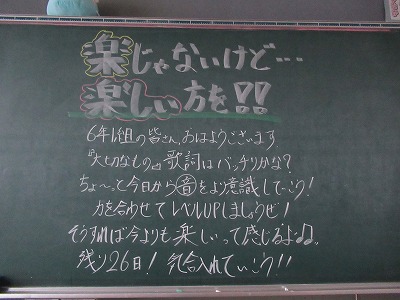 楽じゃないけど…
楽しい方を!!
6年1組の皆さん、おはようございます
『大切なもの』歌詞はバッチリかな?
ちょ〜っと今日から音をより意識していこう!
力を合わせてレベルUPしましょうぜ!
そうすれば今よりも楽しいって感じるよ♫♪。
残り26日!気合入れていこう!!